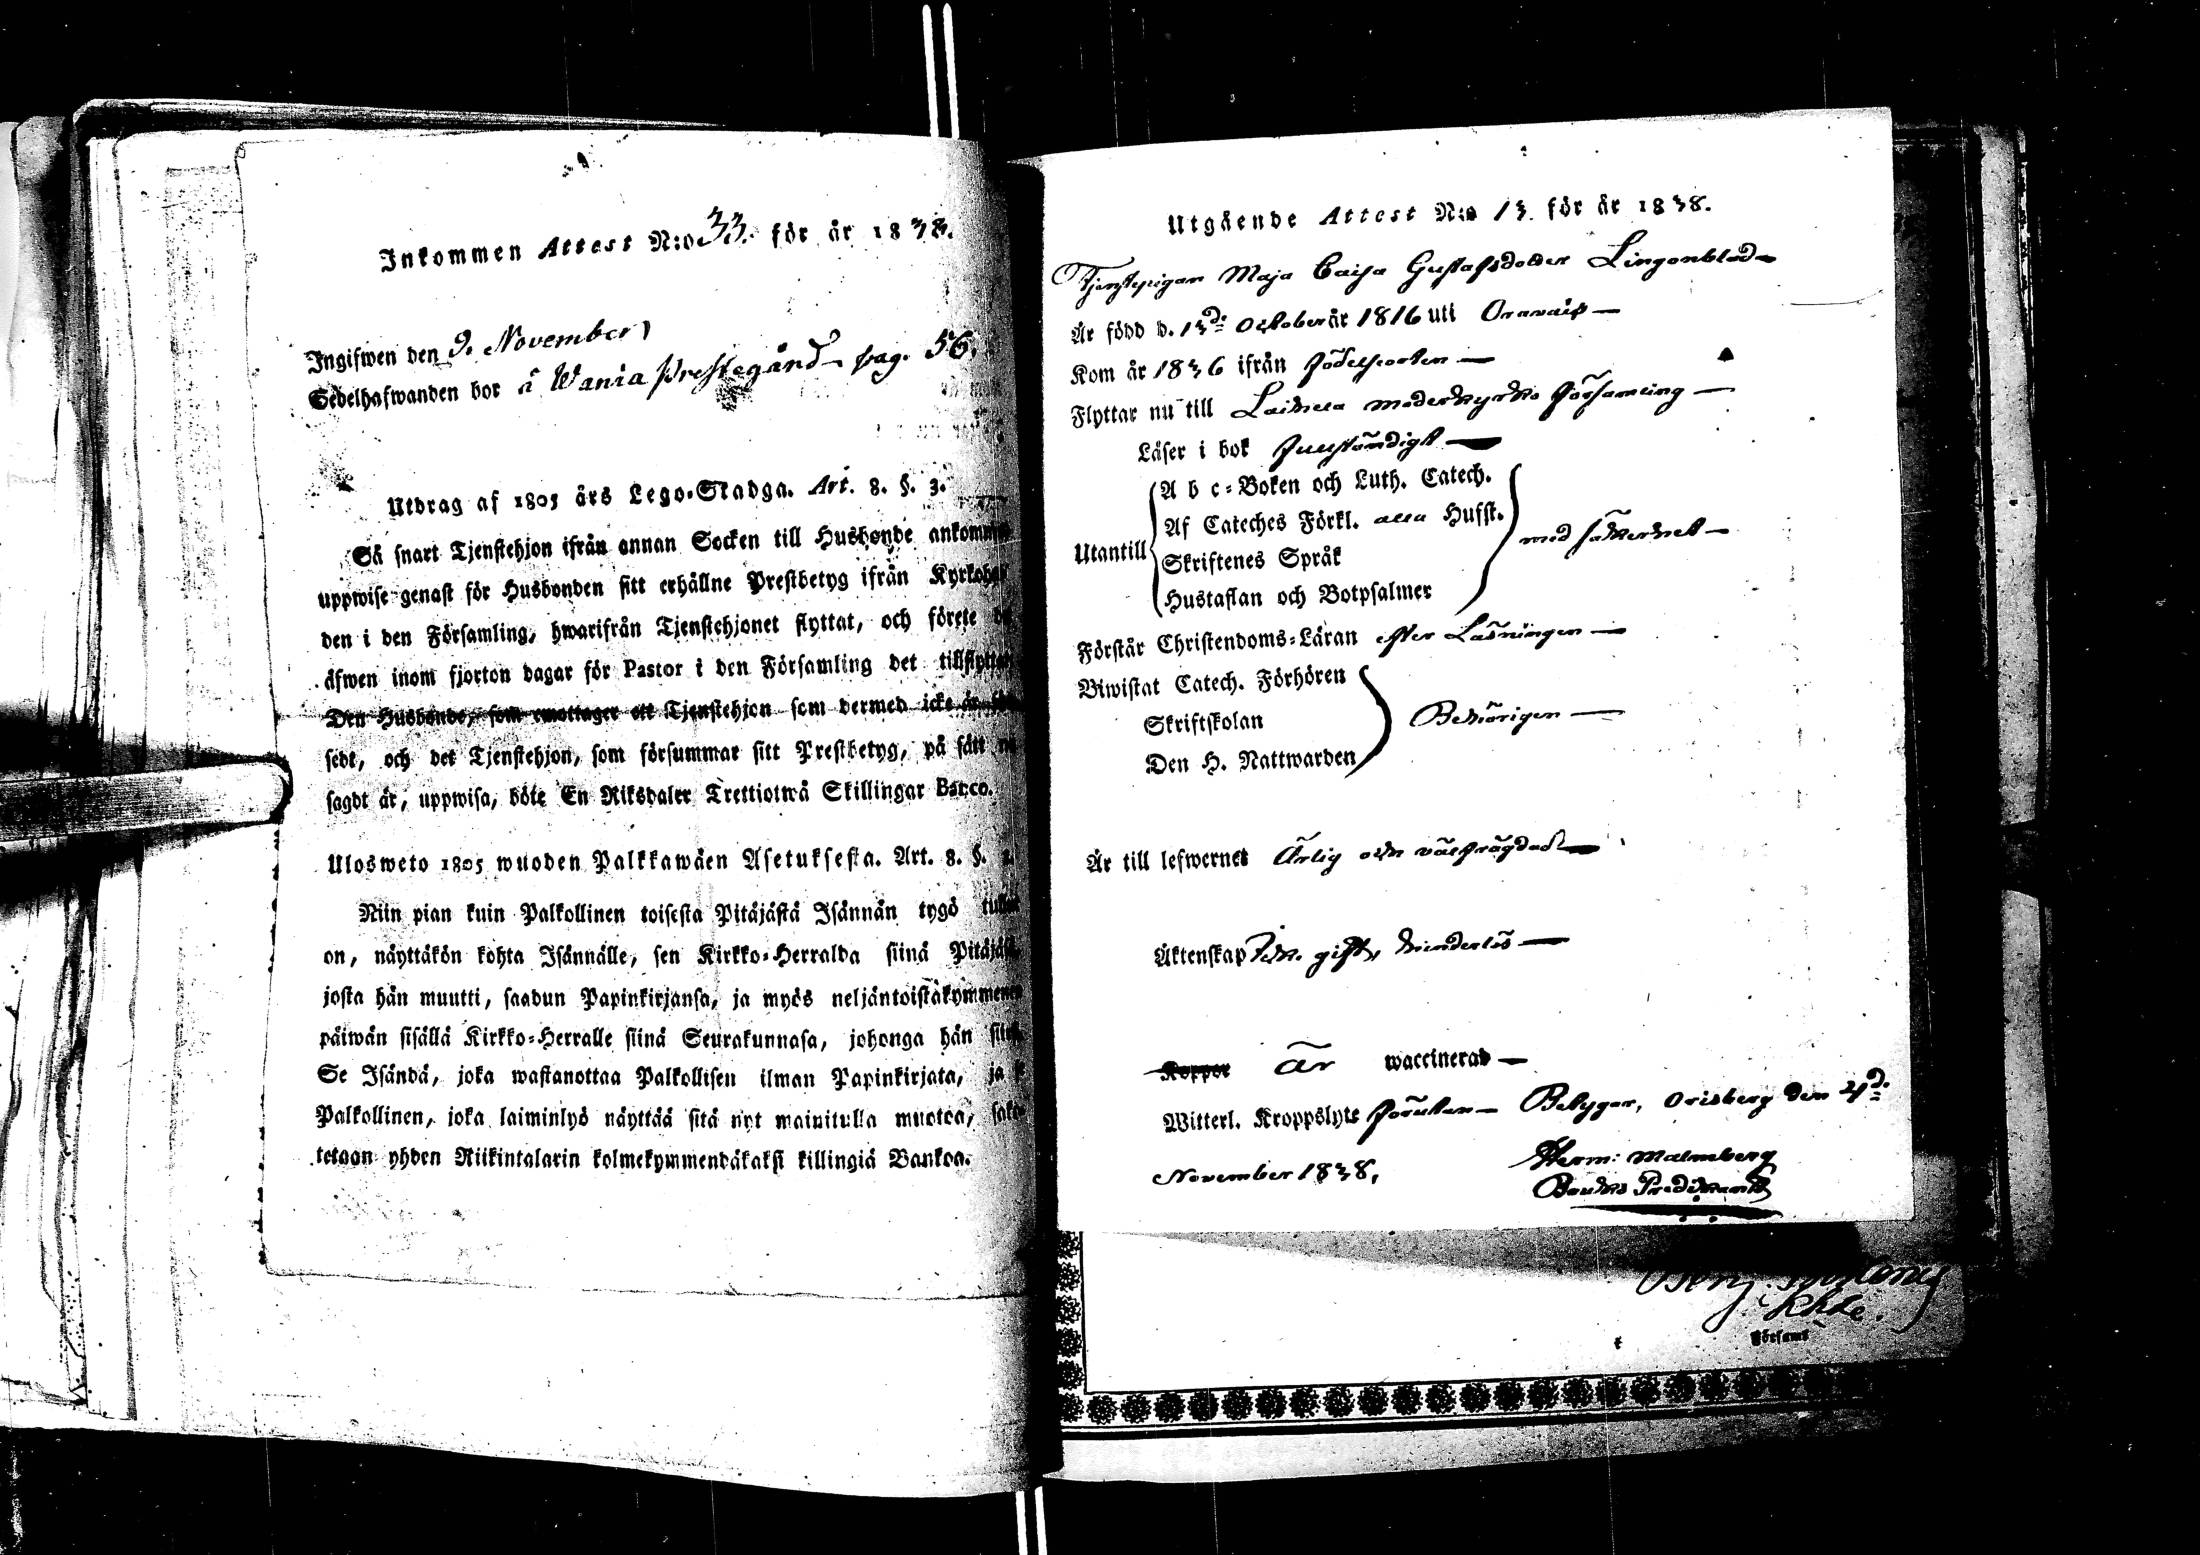 Inkommen Attest N:o 33. för år 1838.
Ingifwen den 9. November
Sedelhafwanden bor å Wania Prestegård pag. 56.
Utdrag af 1805 års Lego-Stadga. Art. 8. §. 3.
Så snart Tjenstehjon ifrån annan Socken till Husbonde
uppwise genast för Husbonden sitt erhållne Prestbetyg ifrån
den i den Församling, hwarifrån Tjenstehjonet flyttat, och förete
äfwen inom fjorton dagar för Pastor i den Församling det
Den Husbonde, som emottager ett Tjenstehjon som dermed icke är
sedt, och det Tjenstehjon, som försummar sitt Prestbetyg, på sätt
sagdt är, uppwisa, böte En Riksdaler Trettiotwå Skillingar Banco.
Ulosweto 1805 wuoden Palkkawäen Asetuksesta. Art. 8. §.
Niin pian kuin Palkollinen toisesta Pitäjästä Isännän tygö
on, näyttäkön kohta Isännälle, sen Kirkko-Herralda siinä
josta hän muutti, saadun Papinkirjansa, ja myös neljäntoistakymmenen
päiwän sisällä Kirkko-Herralle siinä Seurakunnasa, johonga hän
Se Isändä, joka wastanottaa Palkollisen ilman Papinkirjata, ja
Palkollinen, joka laiminlyö näyttää sitä nyt mainitulla muotoa,
tetaan yhden Riikintalarin kolmekymmendäkaksi killingiä Bankoa.
Utgående Attest N:o 13. för år 1838.
Tjenstepigan Maja Caisa Gustafsdotter Lingonblad
Är född d. 13de October år 1816 uti Oravais
Kom år 1836 ifrån födelseorten
Flyttar nu till Laihela moderkyrko församling
Läser i bok fullständigt
A b c-Boken och Luth. Catech.
Af Cateches Förkl. alla Hufst.
Utantill med säkerhet
Skriftenes Språk
Hustaflan och Botpsalmer
Förstår Christendoms-Läran efter Läsningen
Biwistat Catech. Förhören
Skriftskolan Behörigen
Den H. Nattwarden
Är till lefwernet Ärlig och välfrägdad
Äktenskap Ick. gift, hinderlös
Koppor är waccinerad
Witterl. Kroppslyte förutan Betygar, Orisberg den 4d.
November 1838.
Herm: Malmberg
Bruks Predikant